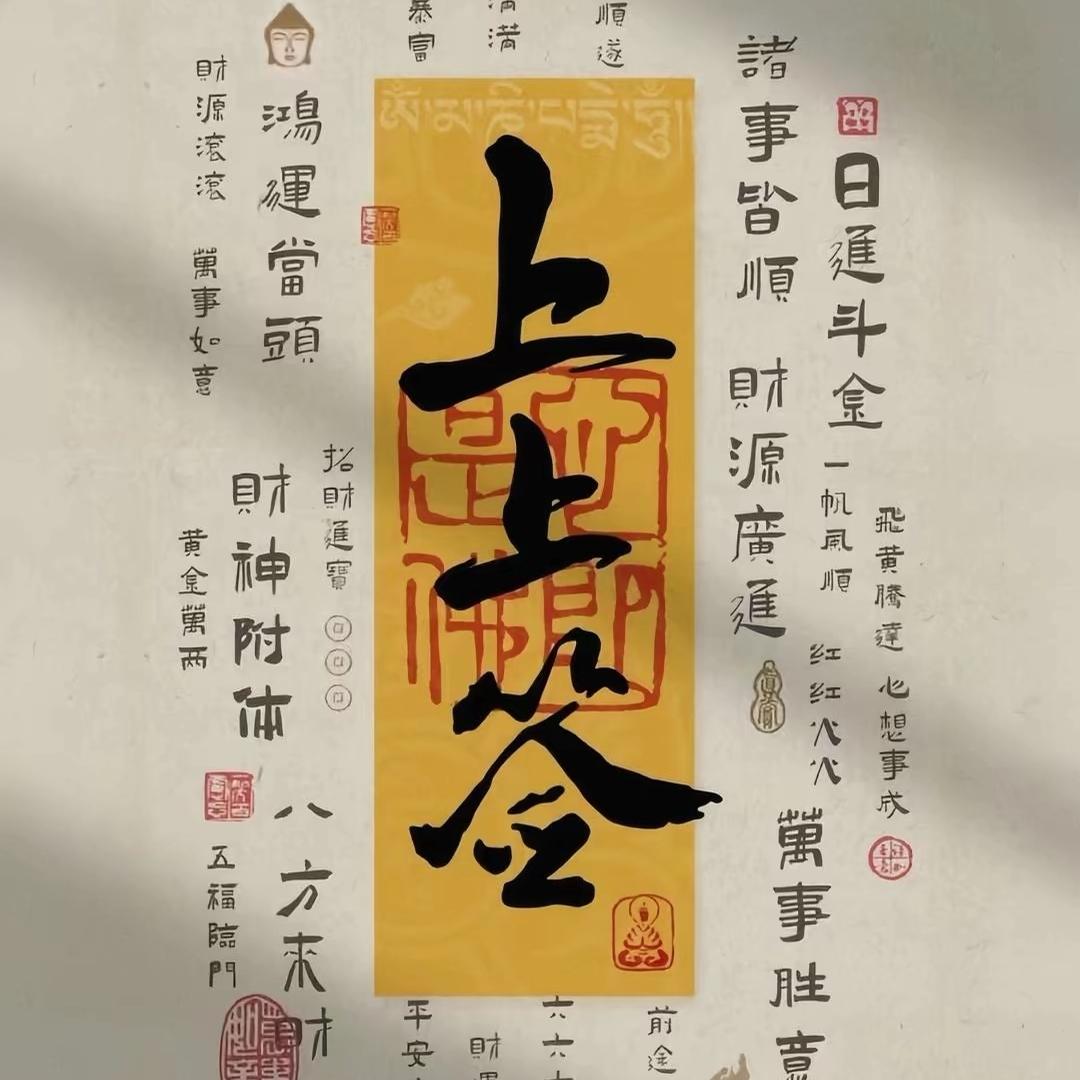 上上签
ༀ་མ་ཎི་པདྨེ་ཧཱུྃ
諸事皆順
財源廣進
日進斗金
一帆風順
飛黄騰達
心想事成
红红火火
萬事胜意
順遂
满满
暴富
鴻運當頭
財源滾滾
萬事如意
招財進寶
財神附体
黄金萬两
八方来財
五福臨門
平安
財運
六六六
前途
亦是即佛